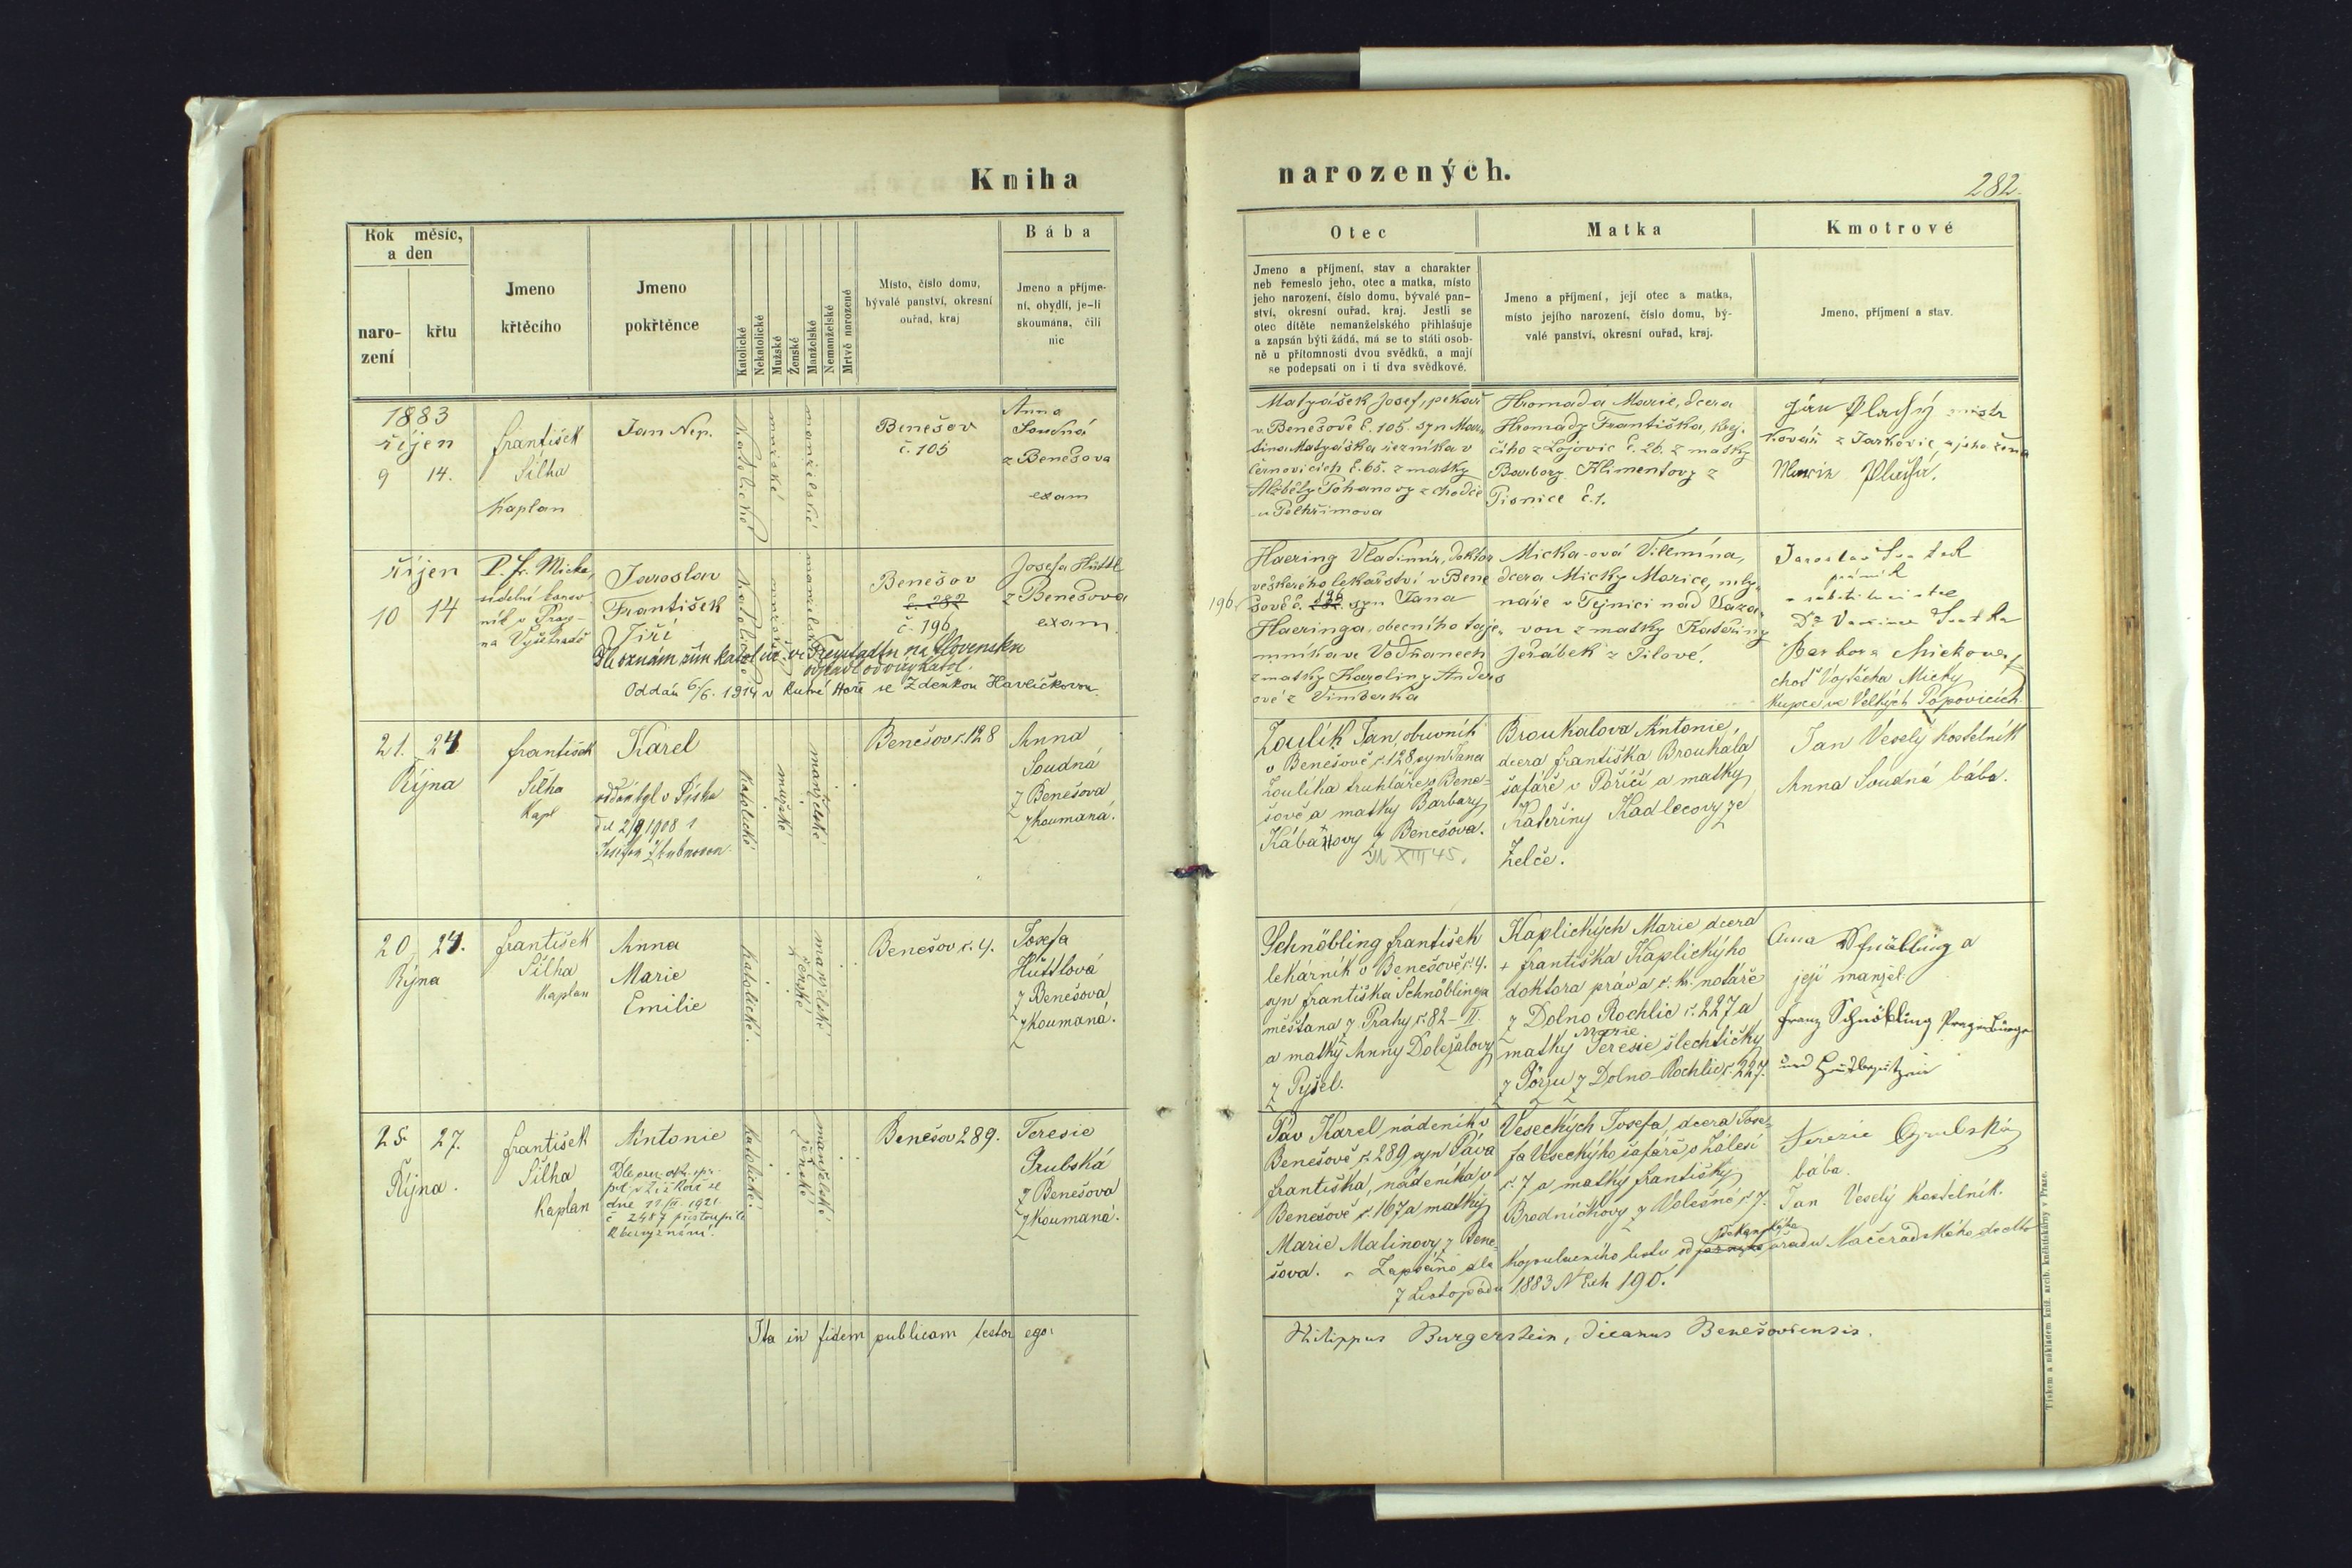 Kniha
narozených.
282.
Rok měsíc,
a den
naro-
zení
křtu
Jmeno
křtěcího
Jmeno
pokřtěnce
Katolické
Nekatolické
Mužské
Ženské
Manželské
Nemanželské
Mrtvě narozené
Místo, číslo domu,
bývalé panství, okresní
ouřad, kraj
Bába
Jmeno a příjme-
ní, obydlí, je-li
skoumána, čili
nic
Otec
Jmeno a příjmení, stav a charakter
neb řemeslo jeho, otec a matka, místo
jeho narození, číslo domu, bývalé pan-
ství, okresní ouřad, kraj. Jestli se
otec dítěte nemanželského přihlašuje
a zapsán býti žádá, má se to státi osob-
ně u přítomnosti dvou svědků, a mají
se podepsati on i ti dva svědkové.
Matka
Jmeno a příjmení, její otec a matka,
místo jejího narození, číslo domu, bý-
valé panství, okresní ouřad, kraj.
Kmotrové
Jmeno, příjmení a stav.
1883
říjen
9 14.
František
Šilha
Kaplan
Jan Nep.
Katolické
mužské
manželské
Benešov
č. 105
Anna
Soudná
z Benešova
exam
Matyášek Josef, pekař
v Benešově č. 105. syn Mar-
tina Matyáška řezníka v
Černovicích č. 65. z matky
Alžběty Pohanovy z
u Pelhřimova
Hromada Marie, dcera
Hromady Františka, krej-
čího z Lojovic č. 26. z matky
Barbory Klimentovy z
Pisnice č. 1.
Jan Plachý mistr
Kovář z , a jeho žena
Marie Plachá.
říjen
10 14
P. Fr. Micka,
údolní kanov-
ník v Praze-
na Vyšehradě
Jaroslav
František
Jiří
Katolické
mužské
manželské
Benešov
č. 282
č. 196
Josefa Hüttl
z Benešova
exam
odpadl od církve katol.
Oddán 6/6. 1914 v Kutné Hoře se Zdeňkou Havlíčkovou.
196.
Haering Vladimír, doktor
veškerého lékařství v Bene
šově č. 282 196 syn Jana
Haeringa, obecního taje-
mníka ve Vodňanech
z matky Karoliny Anders
ové z Vimberka
Micka-ová Vilemína,
dcera Micky Morice, mly-
náře v Tejnici nad Sáza-
vou z matky Kateřiny
Jeřábek z Jílové.
Jaroslav
Barbora Mickova
choť Vojtěcha Micky
kupce ve Velkých Popovicích.
21. 24
Října
František
Šilha
Kapl
Karel
oddán byl v Písku
dne 2/9 1908 s
Katolické
mužské
manželské
Benešov č. 128
Anna
Soudná
z Benešova
zkoumaná.
Zoulík Jan, obuvník
v Benešově č. 128, syn Jana
Zoulíka truhláře v Bene-
šově a matky Barbary
z Benešova.
XIII 45.
Broukalova Antonie,
dcera Františka Broukala
šafáře v Poříčí a matky
Kateřiny Kadlecovy ze
Želče.
Jan Veselý kostelník
Anna Soudná bába.
20. 24.
Října
František
Šilha
Kaplan
Anna
Marie
Emilie
Katolické.
ženské
manželské
Benešov č. 4.
Josefa
Hüttlová
z Benešova
zkoumaná.
Schnöbling František
lekárník v Benešově č. 4.
syn Františka Schnöblinga
měšťana z Prahy č. 82 – II.
a matky Anny Doležalovy
z Pyšel.
Kaplických Marie dcera
+ Františka Kaplického
doktora práv a c. k. notáře
z Dolno Rochlic č. 227 a
matky Marie Teresie šlechtičky
z Dolno-Rochlic č. 227.
Anna Schnöbling a
její manžel
Franz Schnöbling Prager Bürger
und Hausbesitzer
25 27.
Října.
František
Šilha
Kaplán
Antonie
dne 11/III 1921
č 2487 přistoupila
k bezvyznání.
Katolické.
ženské
manželské
Benešov 289.
Teresie
Grubská
z Benešova
zkoumaná.
Páv Karel nádeník v
Benešově č. 289 syn Páva
Františka, nádeníka v
Benešově č. 167 a matky
Marie Malinovy z Bene-
šova. Zapsáno dle kopulačního listu od děkanského úřadu Načeradského ddto
7 Listopadu 1883 N Exh 190.
Veseckých Josefa, dcera Jose-
fa Veseckýho šafáře v Zálesí
č. 7 a matky Františky
Bredničkovy z Volešné č. 7.
Terezie Grubská
bába.
Jan Veselý kostelník.
Ita in fidem publicam testor ego:
Philippus Burgerstein, Decanus Benešoviensis.
Tiskem a nákladem kníž. arcib. knihtiskárny v Praze.